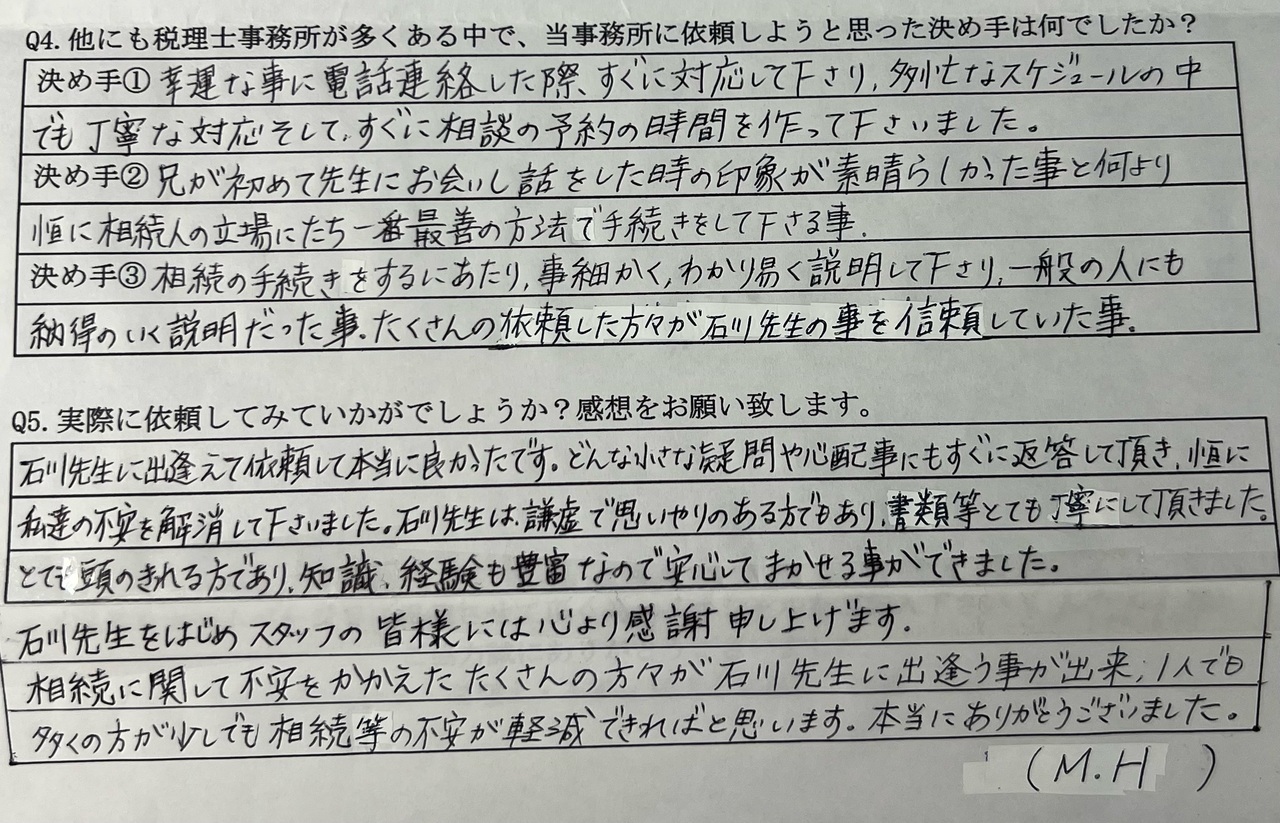 Q4. 他にも税理士事務所が多くある中で、当事務所に依頼しようと思った決め手は何でしたか？
決め手① 幸運な事に電話連絡した際、すぐに対応して下さり、多忙なスケジュールの中
でも丁寧な対応そして、すぐに相談の予約の時間を作って下さいました。
決め手② 兄が初めて先生にお会いし話をした時の印象が素晴らしかった事と何より
恒に相続人の立場にたち一番最善の方法で手続きをして下さる事.
決め手③ 相続の手続きをするにあたり、事細かく、わかり易く説明して下さり、一般の人にも
納得のいく説明だった事.たくさんの依頼した方々が石川先生の事を信頼していた事.
Q5. 実際に依頼してみていかがでしょうか？感想をお願い致します。
石川先生に出逢えて依頼して本当に良かったです。どんな小さな疑問や心配事にもすぐに返答して頂き、恒に
私達の不安を解消して下さいました。石川先生は、謙虚で思いやりのある方でもあり、書類等とても丁寧にして頂きました。
とても頭のきれる方であり、知識、経験も豊富なので安心してまかせる事ができました。
石川先生をはじめスタッフの皆様には心より感謝申し上げます.
相続に関して不安をかかえたたくさんの方々が石川先生に出逢う事が出来、1人でも
多くの方が少しでも相続等の不安が軽減できればと思います。本当にありがとうございました。
(M.H)